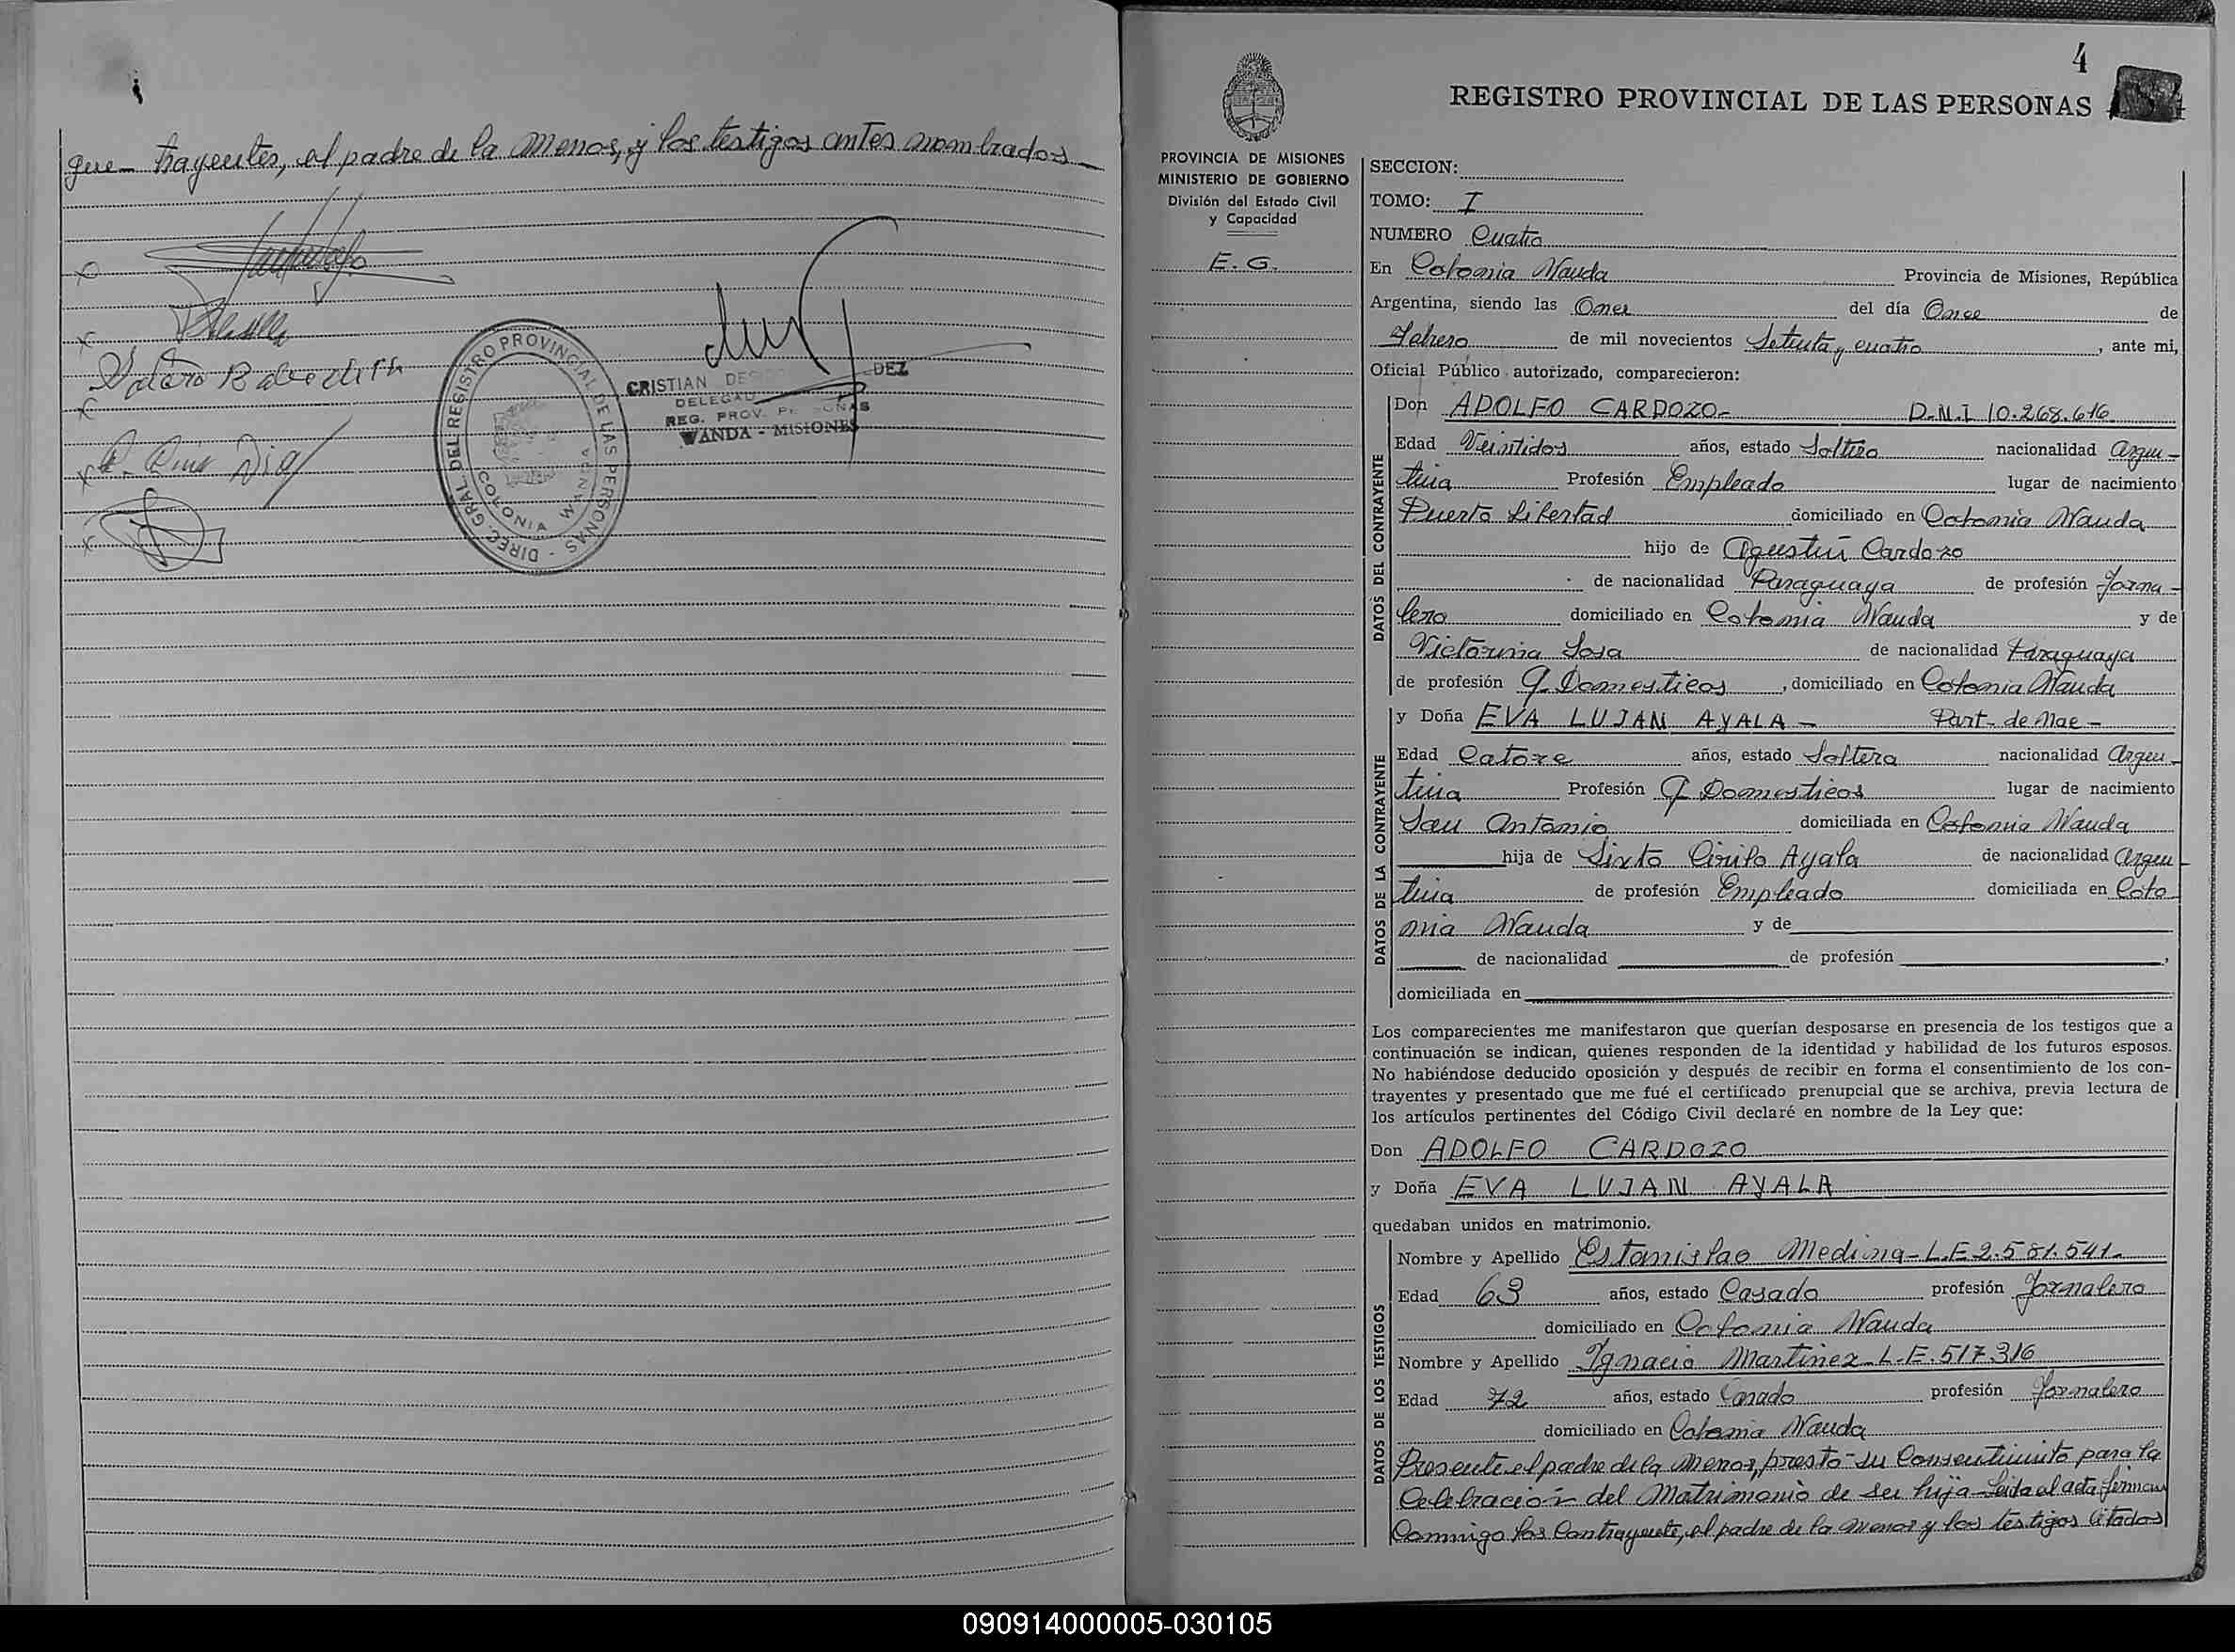 que- trayentes, el padre de la menor, y los testigos antes nombrados-
DIREC. GRAL. DEL REGISTRO PROVINCIAL DE LAS PERSONAS -
COLONIA WANDA
CRISTIAN DEZ
DELEGAD
REG. PROV. PE SONAS
WANDA - MISIONES
4
REGISTRO PROVINCIAL DE LAS PERSONAS
PROVINCIA DE MISIONES
MINISTERIO DE GOBIERNO
División del Estado Civil
y Capacidad
E. G.
SECCION:
TOMO: I
NUMERO Cuatro
En Colonia Wanda Provincia de Misiones, República
Argentina, siendo las Once del día Once de
Febrero de mil novecientos Setenta y cuatro, ante mi,
Oficial Público autorizado, comparecieron:
DATOS DEL CONTRAYENTE
Don ADOLFO CARDOZO- D.N.I 10.268.616
Edad Veintidos años, estado Soltero nacionalidad Argen-
tina Profesión Empleado lugar de nacimiento
Puerto Libertad domiciliado en Colonia Wanda
hijo de Agustin Cardozo
de nacionalidad Paraguaya de profesión Jorna-
lero domiciliado en Colonia Wanda y de
Victorina Sosa de nacionalidad Paraguaya
de profesión Q. Domesticos, domiciliado en Colonia Wanda
DATOS DE LA CONTRAYENTE
y Doña EVA LUJAN AYALA- Part- de Nac-
Edad Catorce años, estado Soltera nacionalidad Argen-
tina Profesión Q Domesticos lugar de nacimiento
San Antonio domiciliada en Colonia Wanda
hija de Sixto Cirilo Ayala de nacionalidad Argen-
tina de profesión Empleado domiciliada en Colo
nia Wanda y de
de nacionalidad de profesión ,
domiciliada en
Los comparecientes me manifestaron que querían desposarse en presencia de los testigos que a
continuación se indican, quienes responden de la identidad y habilidad de los futuros esposos.
No habiéndose deducido oposición y después de recibir en forma el consentimiento de los con-
trayentes y presentado que me fué el certificado prenupcial que se archiva, previa lectura de
los artículos pertinentes del Código Civil declaré en nombre de la Ley que:
Don ADOLFO CARDOZO
y Doña EVA LUJAN AYALA
quedaban unidos en matrimonio.
DATOS DE LOS TESTIGOS
Nombre y Apellido Estanislao Medina- L.E 2.581.541-
Edad 63 años, estado Casado profesión Jornalero
domiciliado en Colonia Wanda
Nombre y Apellido Ignacio Martinez L.E. 517.316
Edad 72 años, estado Casado profesión Jornalero
domiciliado en Colonia Wanda
Presente el padre de la menor, presto su Consentimiento para la
Celebración del Matrimonio de su hija- Leida el acta firman
Conmigo los Contrayente, el padre de la menor y los testigos citados
090914000005-030105